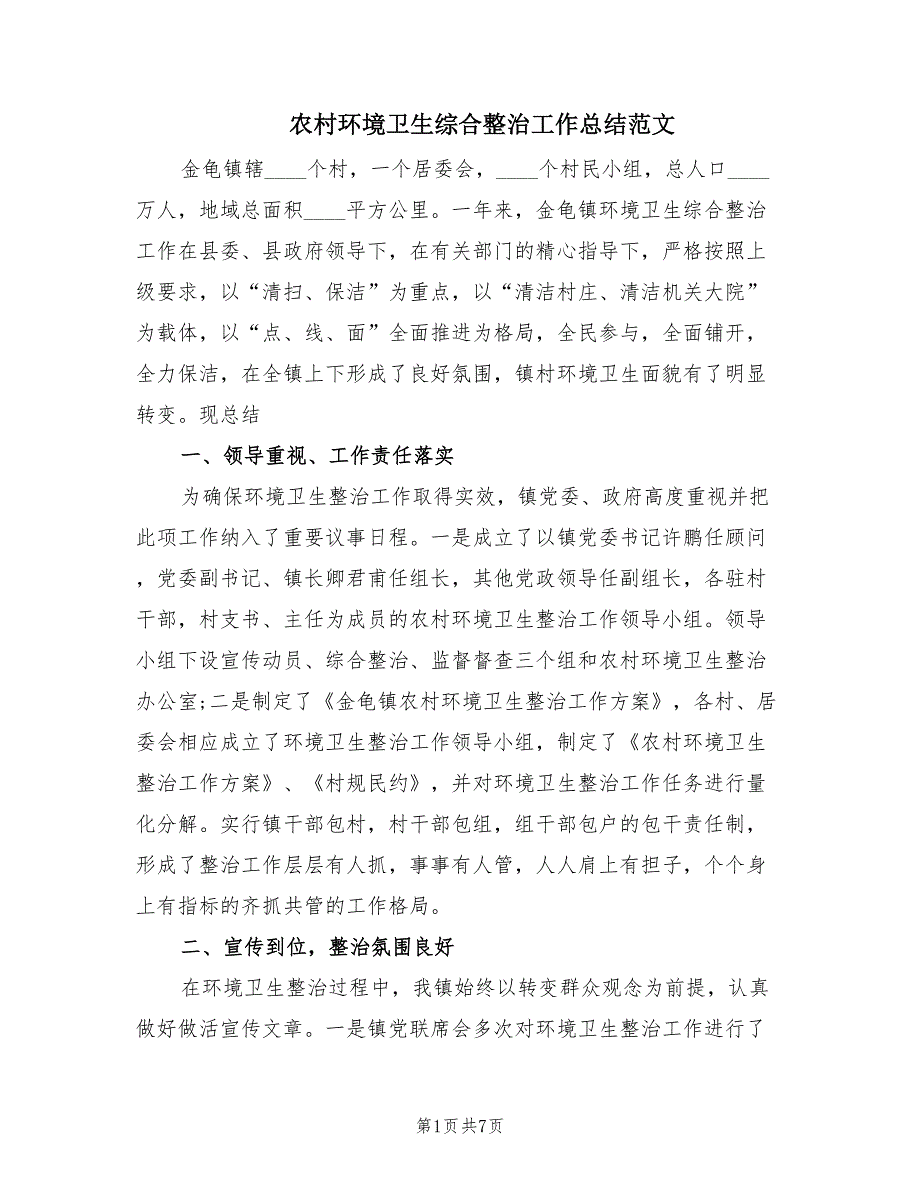 农村环境卫生综合整治工作总结范文
金龟镇辖____个村，一个居委会，____个村民小组，总人口____
万人，地域总面积____平方公里。一年来，金龟镇环境卫生综合整治
工作在县委、县政府领导下，在有关部门的精心指导下，严格按照上
级要求，以“清扫、保洁”为重点，以“清洁村庄、清洁机关大院”
为载体，以“点、线、面”全面推进为格局，全民参与，全面铺开，
全力保洁，在全镇上下形成了良好氛围，镇村环境卫生面貌有了明显
转变。现总结
一、领导重视、工作责任落实
为确保环境卫生整治工作取得实效，镇党委、政府高度重视并把
此项工作纳入了重要议事日程。一是成立了以镇党委书记许鹏任顾问
，党委副书记、镇长卿君甫任组长，其他党政领导任副组长，各驻村
干部，村支书、主任为成员的农村环境卫生整治工作领导小组。领导
小组下设宣传动员、综合整治、监督督查三个组和农村环境卫生整治
办公室;二是制定了《金龟镇农村环境卫生整治工作方案》，各村、居
委会相应成立了环境卫生整治工作领导小组，制定了《农村环境卫生
整治工作方案》、《村规民约》，并对环境卫生整治工作任务进行量
化分解。实行镇干部包村，村干部包组，组干部包户的包干责任制，
形成了整治工作层层有人抓，事事有人管，人人肩上有担子，个个身
上有指标的齐抓共管的工作格局。
二、宣传到位，整治氛围良好
在环境卫生整治过程中，我镇始终以转变群众观念为前提，认真
做好做活宣传文章。一是镇党联席会多次对环境卫生整治工作进行了
第1页共7页